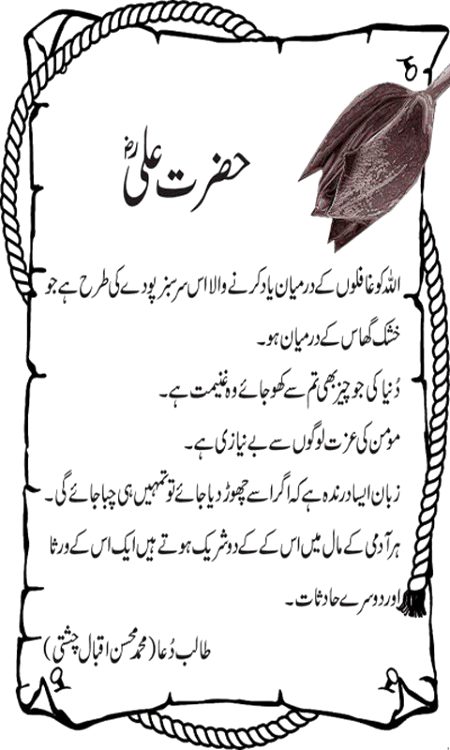 حضرت علیؓ
اللہ کو غافلوں کے درمیان یاد کرنے والا اس سرسبز پودے کی طرح ہے جو
خشک گھاس کے درمیان ہو۔
دُنیا کی جو چیز بھی تم سے کھو جائے وہ غنیمت ہے۔
مومن کی عزت لوگوں سے بے نیازی ہے۔
زبان ایسا درندہ ہے کہ اگر اسے چھوڑ دیا جائے تو تمہیں ہی چبا جائے گی۔
ہر آدمی کے مال میں اس کے کے دو شریک ہوتے ہیں ایک اس کے ورثا
اور دوسرے حادثات۔
طالب دُعا (محمد محسن اقبال چشتی)